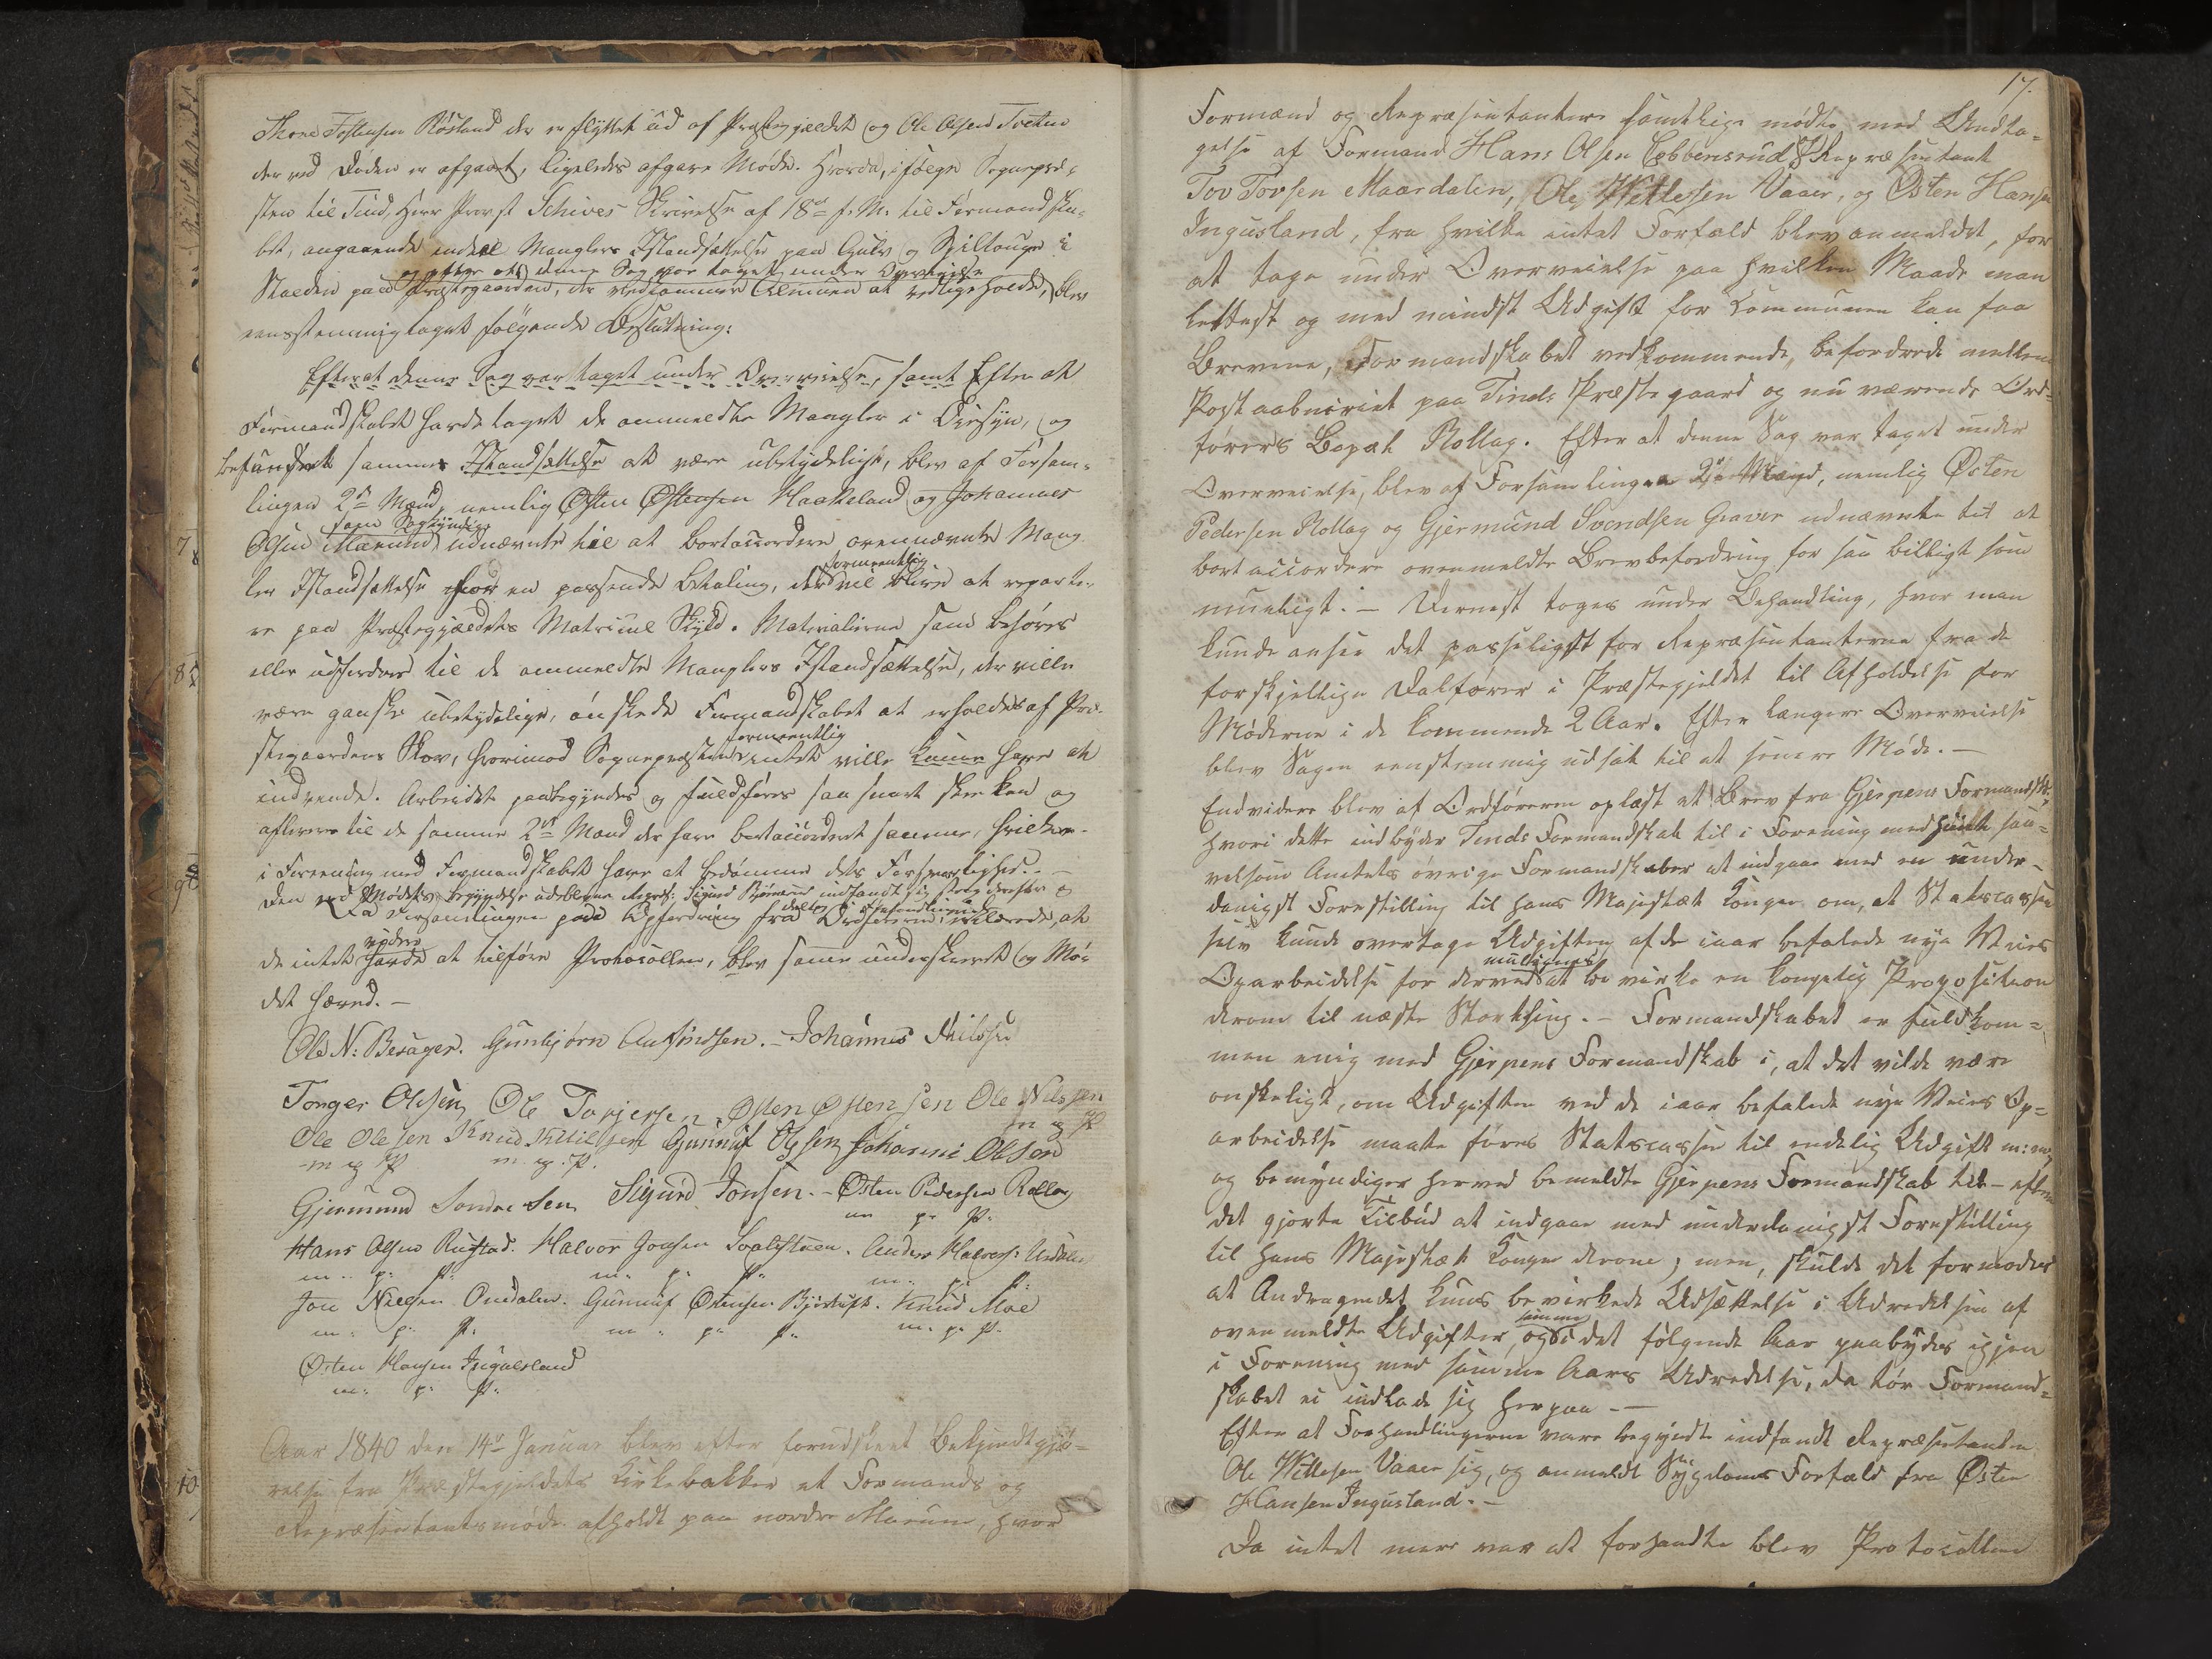 Thore Tostensen Rösland der er flyttet ud af Præstegjældet og Ole Olsen Tveten
der ved Døden er afgaaet, ligeledes afgave Møde. Hvorda, ifølge Sognepræ-
sten til Tind, Herr Provst Schives Skrivelse af 18de f. M. til Formandska-
bet, angaaende endeel Manglers Istandsættelse paa Gulv og Spiltouge i
og efter at denne Sag var taget under Overveielse
Stalden paa Præstegaarden, der vedkommer Almuen at vedligeholde, blev
eensstemmig taget følgende Beslutning:
Efterat denne Sag var taget under Overveielse, samt Efter at
Formandskabet havde taget de anmeldte Mangler i Øiesyn, og
befundet sammes Istandsættelse at være ubetydelige, blev af Forsam-
lingen 2de Mænd, nemlig Østen Østensen Haakeland og Johannes
som Sagkyndige
Olsen Marum udnævnte til at bortaccordere ovennævnte Mang-
formeentlig
lers Istandsættelse for en passende Betaling, der vil blive at reparte-
re paa Præstegjældets Matricul Skyld. Materialierne som behøves
eller udfordres til de anmeldte Manglers Istandsættelse, der ville
være ganske ubetydelige, ønskede Formandskabet at erholdes af Præ-
formeentlig
stegaardens Skov, hvorimod Sognepræsten intet ville kunne have at
indvende. Arbeidet paabegyndes og fuldføres saa snart skee kan og
afleveres til de samme 2de Mænd der have bortaccorderet samme, hvilke
i Forening med Formandskabet have at bedømme dets Forsvarlighed. –
Den ved Mødets begyndelse udeblevne Repræs: Sigurd indfandt sig strax derefter og
deltog i Forhandlingerne
Da Forsamlingen paa Opfordring fra Ordføreren erklærede, at
videre
de intet havde at tilføre Protocollen, blev samme underskrevet og Mø-
det hævet. –
Ole N: Besager. Gunbjørn Aufindsen. – Johannes Neilsen
Torger Olesen Ole Torjersen Østen Østensen Ole Nilssen
m p
Ole Olesen Knud Kittilsen Gunnuf Olssen Johannes Olson
m p m. p.
Gjermund Sondresen Sigurd Jonsen. – Østen Pedersen Rollag
m p.
Hans Olsen Rustad. Halvor Joensen Svalestuen. Anders Halvors:
m. p. m. p. m. p.
Jon Nielsen Ormdalen. Gunnuf Østensen Bjørtuft. Knud Moe
m. p. m. p. m. p.
Østen Hansen Ingulsland
m. p.
Aar 1840 den 14de Januar blev efter forudskeet Bekjendtgjø-
relse fra Præstegjeldets Kirkebakker et Formands og
Repræsentantsmøde afholdt paa nordre Marum, hvor
17.
Formænd og Repræsentantere samtlige mødte med Undta-
gelse af Formand Hans Olsen Ebbensrud & Repræsentant
Tov Tovsen Maardalen, Ole Wetlesen Vaaer, og Østen Hansen
Ingusland, fra hvilke intet Forfald blev anmeldt, for
at tage under Overveielse paa hvilken Maade man
lettest og med mindst Udgift for Communen kan faa
Brevene, Formandskabet vedkommende, befordrede mellem
Postaabneriet paa Tinds Præstegaard og nu værende Ord-
førers Bopæl Rollag. Efter at denne Sag var taget under
Overveielse, blev af Forsamlingen 2de Mænd, nemlig Østen
Pedersen Rollag og Gjermund Svendsen Graver udnævnte til at
bortaccordere ovenmeldte Brevbefordring for saa billigt som
mueligt. – Dernæst toges under Behandling, hvor man
kunde ansee det passeligst for Repræsentanterne fra de
forskjellige Dalførere i Præstegjeldet til Afholdelse for
Møderne i de kommende 2 Aar. Efter længere Overveielse
blev Sagen eenstemmig udsat til et senere Møde. –
Endvidere blev af Ordføreren oplæst et Brev fra Gjerpens Formandsk:
hvori dette indbyder Tinds Formandskab til i Forening med hiint saa-
velsom Amtets øvrige Formandskaber at indgaae med en under-
danigst Forestilling til hans Majestæt Kongen om, at Statscassen
selv kunde overtage Udgiften af de iaar befalede nye Veies
muligens
Oparbeidelse for derved at bevirke en kongelig Proposition
derom til næste Storthing. – Formandskabet er fuldkom-
men enig med Gjerpens Formandskab i, at det vilde være
ønskeligt, om Udgiften ved de iaar befalede nye Veies Op-
arbeidelse maatte føres Statscassen til endelig Udgift m: m,
og bemyndiger herved bemeldte Gjerpens Formandskab til – efter
det gjorte Tilbud at indgaae med underdanigst Forestilling
til hans Majestæt Kongen derom; men, skulde det formodes
at Andragendet kuns bevirkede Udsættelse i Udredelsen af
samme
ovenmeldte Udgifter, og i det følgende Aar paabydes igjen
i Forening med samme Aars Udredelse, da tør Formand-
skabet ei indlade sig herpaa. —
Efter at Forhandlingerne vare begyndte indfandt Repræsentanten
Ole Wetlesen Vaaer sig, og anmeldt Sygdoms Forfald fra Østen
Hansen Ingusland. –
Da intet mere var at forhandle blev Protocollen